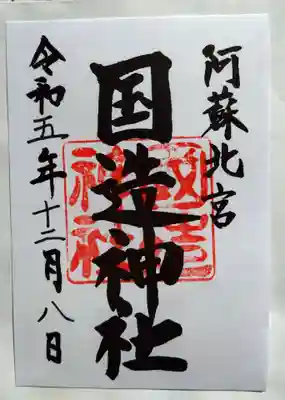 阿蘇北宮
国造神社
令和五年十二月八日